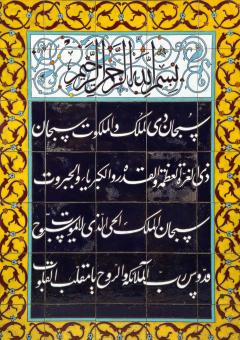 بسم الله الرحمن الرحيم
سبحان ذی الملک والملکوت سبحان
ذی العزة والعظمة والقدرة والکبریاء والجبروت
سبحان الملک الحی الذی لایموت سبوح
قدوس رب الملائکة والروح یا مقلب القلوب